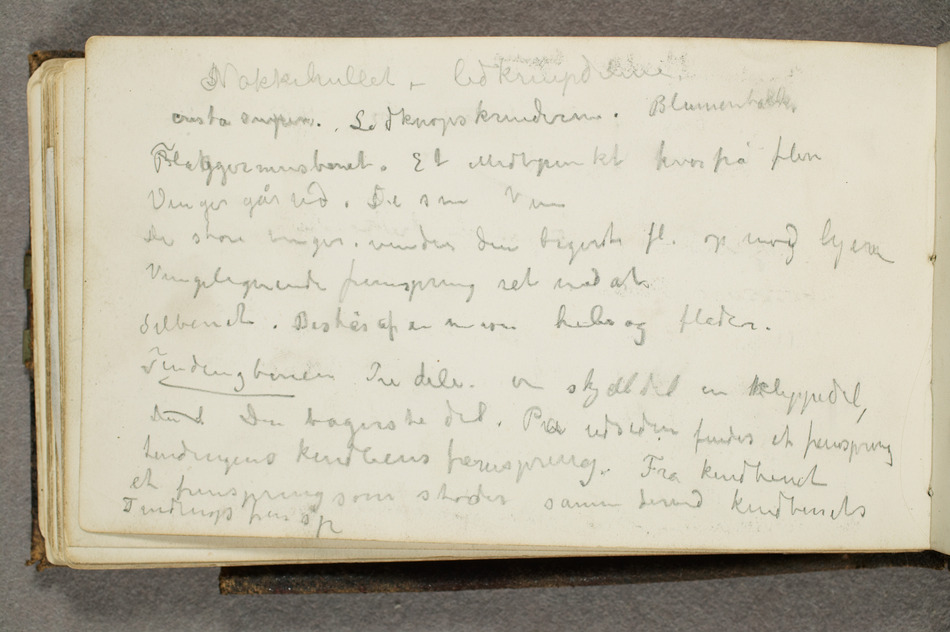 Nakkehullet - ledknupdelene.
crista. Ledknopskrinderne. Blumenbakk
Flaggermusbenet. Et Midtpunkt hvorfra flere
Vinger går ud. De sm Vin
De store vinger. vender den bagerste fl. op mod hjern
Vinglignende fremspring ret nedat.
Silbenet. Består af en huler og flader.
Tindingbenen Tre dele. en skjældel en klippedel,
Den bagerste del. På udsiden findes et fremspring
tindingens kindbens fremspring. Fra kindbenet
et fremspring som støder sammen med kindbenets
Tindings frem sp